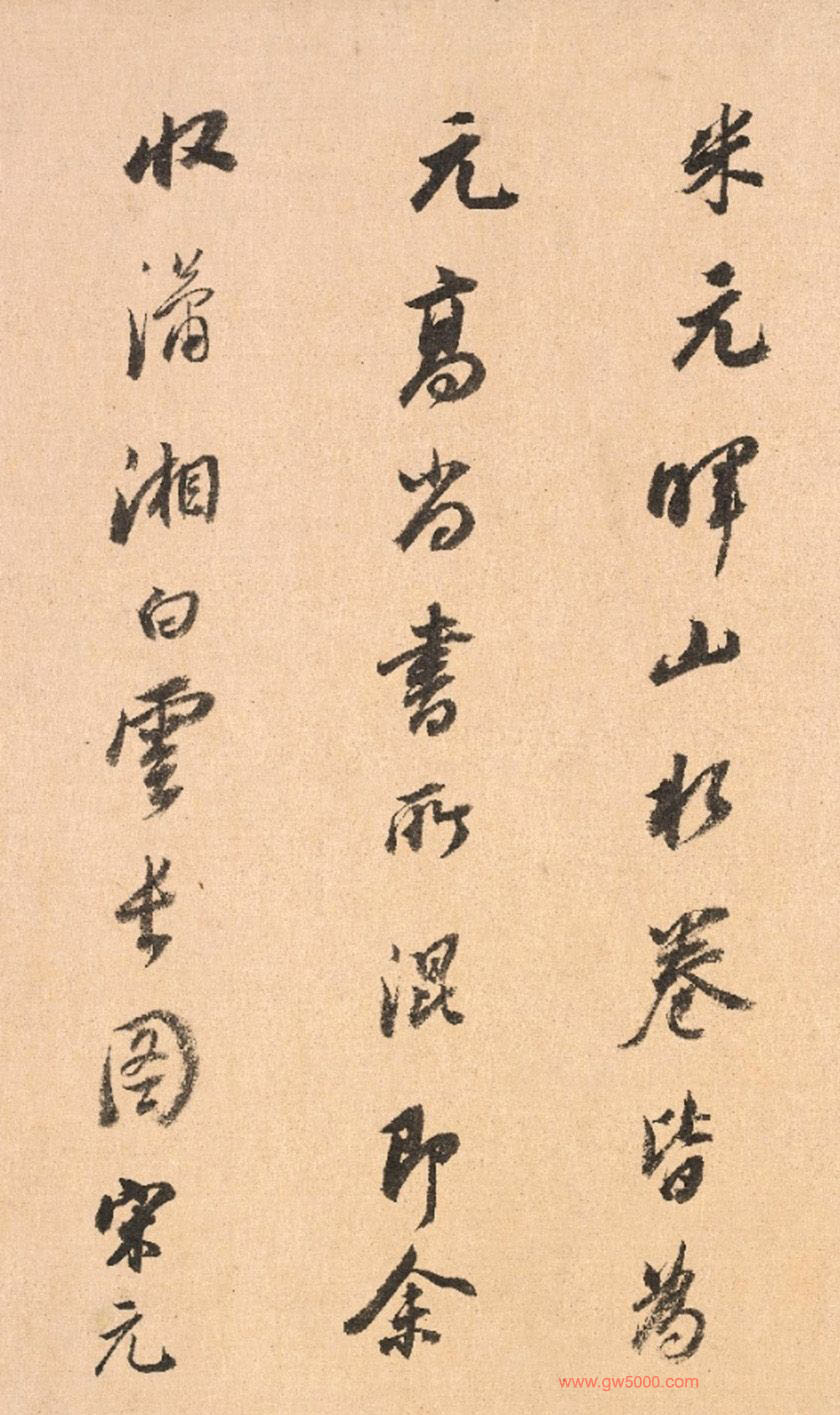 米元暉山水卷皆為
元高尚書所混即余
收瀟湘白雲長圖宋元
www.gw5000.com